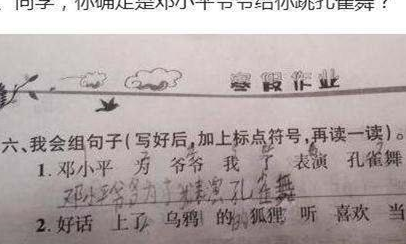 同学，你确定是邓小平爷爷给你跳孔雀舞？
寒假作业
六、我会组句子(写好后,加上标点符号,再读一读)。
1. 邓小平 为 爷爷 我 了 表演 孔雀舞
邓小平爷爷为了我表演孔雀舞
2. 好话 上了 乌鸦 的 狐狸 听 喜欢 当